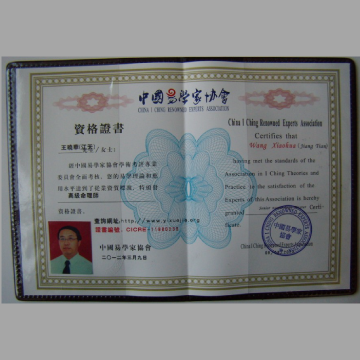 中國易學家协會
CHINA I CHING RENOWNED EXPERTS ASSOCIATION
資格證書
女士：
經中國易學家協會學術考評專家
委員會全面考核，您的易學理論和應
用水平達到了從業資質標准，特頒發
高级命理師
資格證書。
查詢網址:http://www.yixuejx.org
證書編號: CICRE-
中國易學家協會
二〇一二年三月九日
China I Ching Renowned Experts Association
Certifies that
Wang Xiaohua (Jiang Tian)
having met the standards of the
Association in I Ching Theories and
Practice to the satisfaction of the
Experts of this Association is hereby
granted
China I Ching Renowned Experts Association
中國易學家
協會